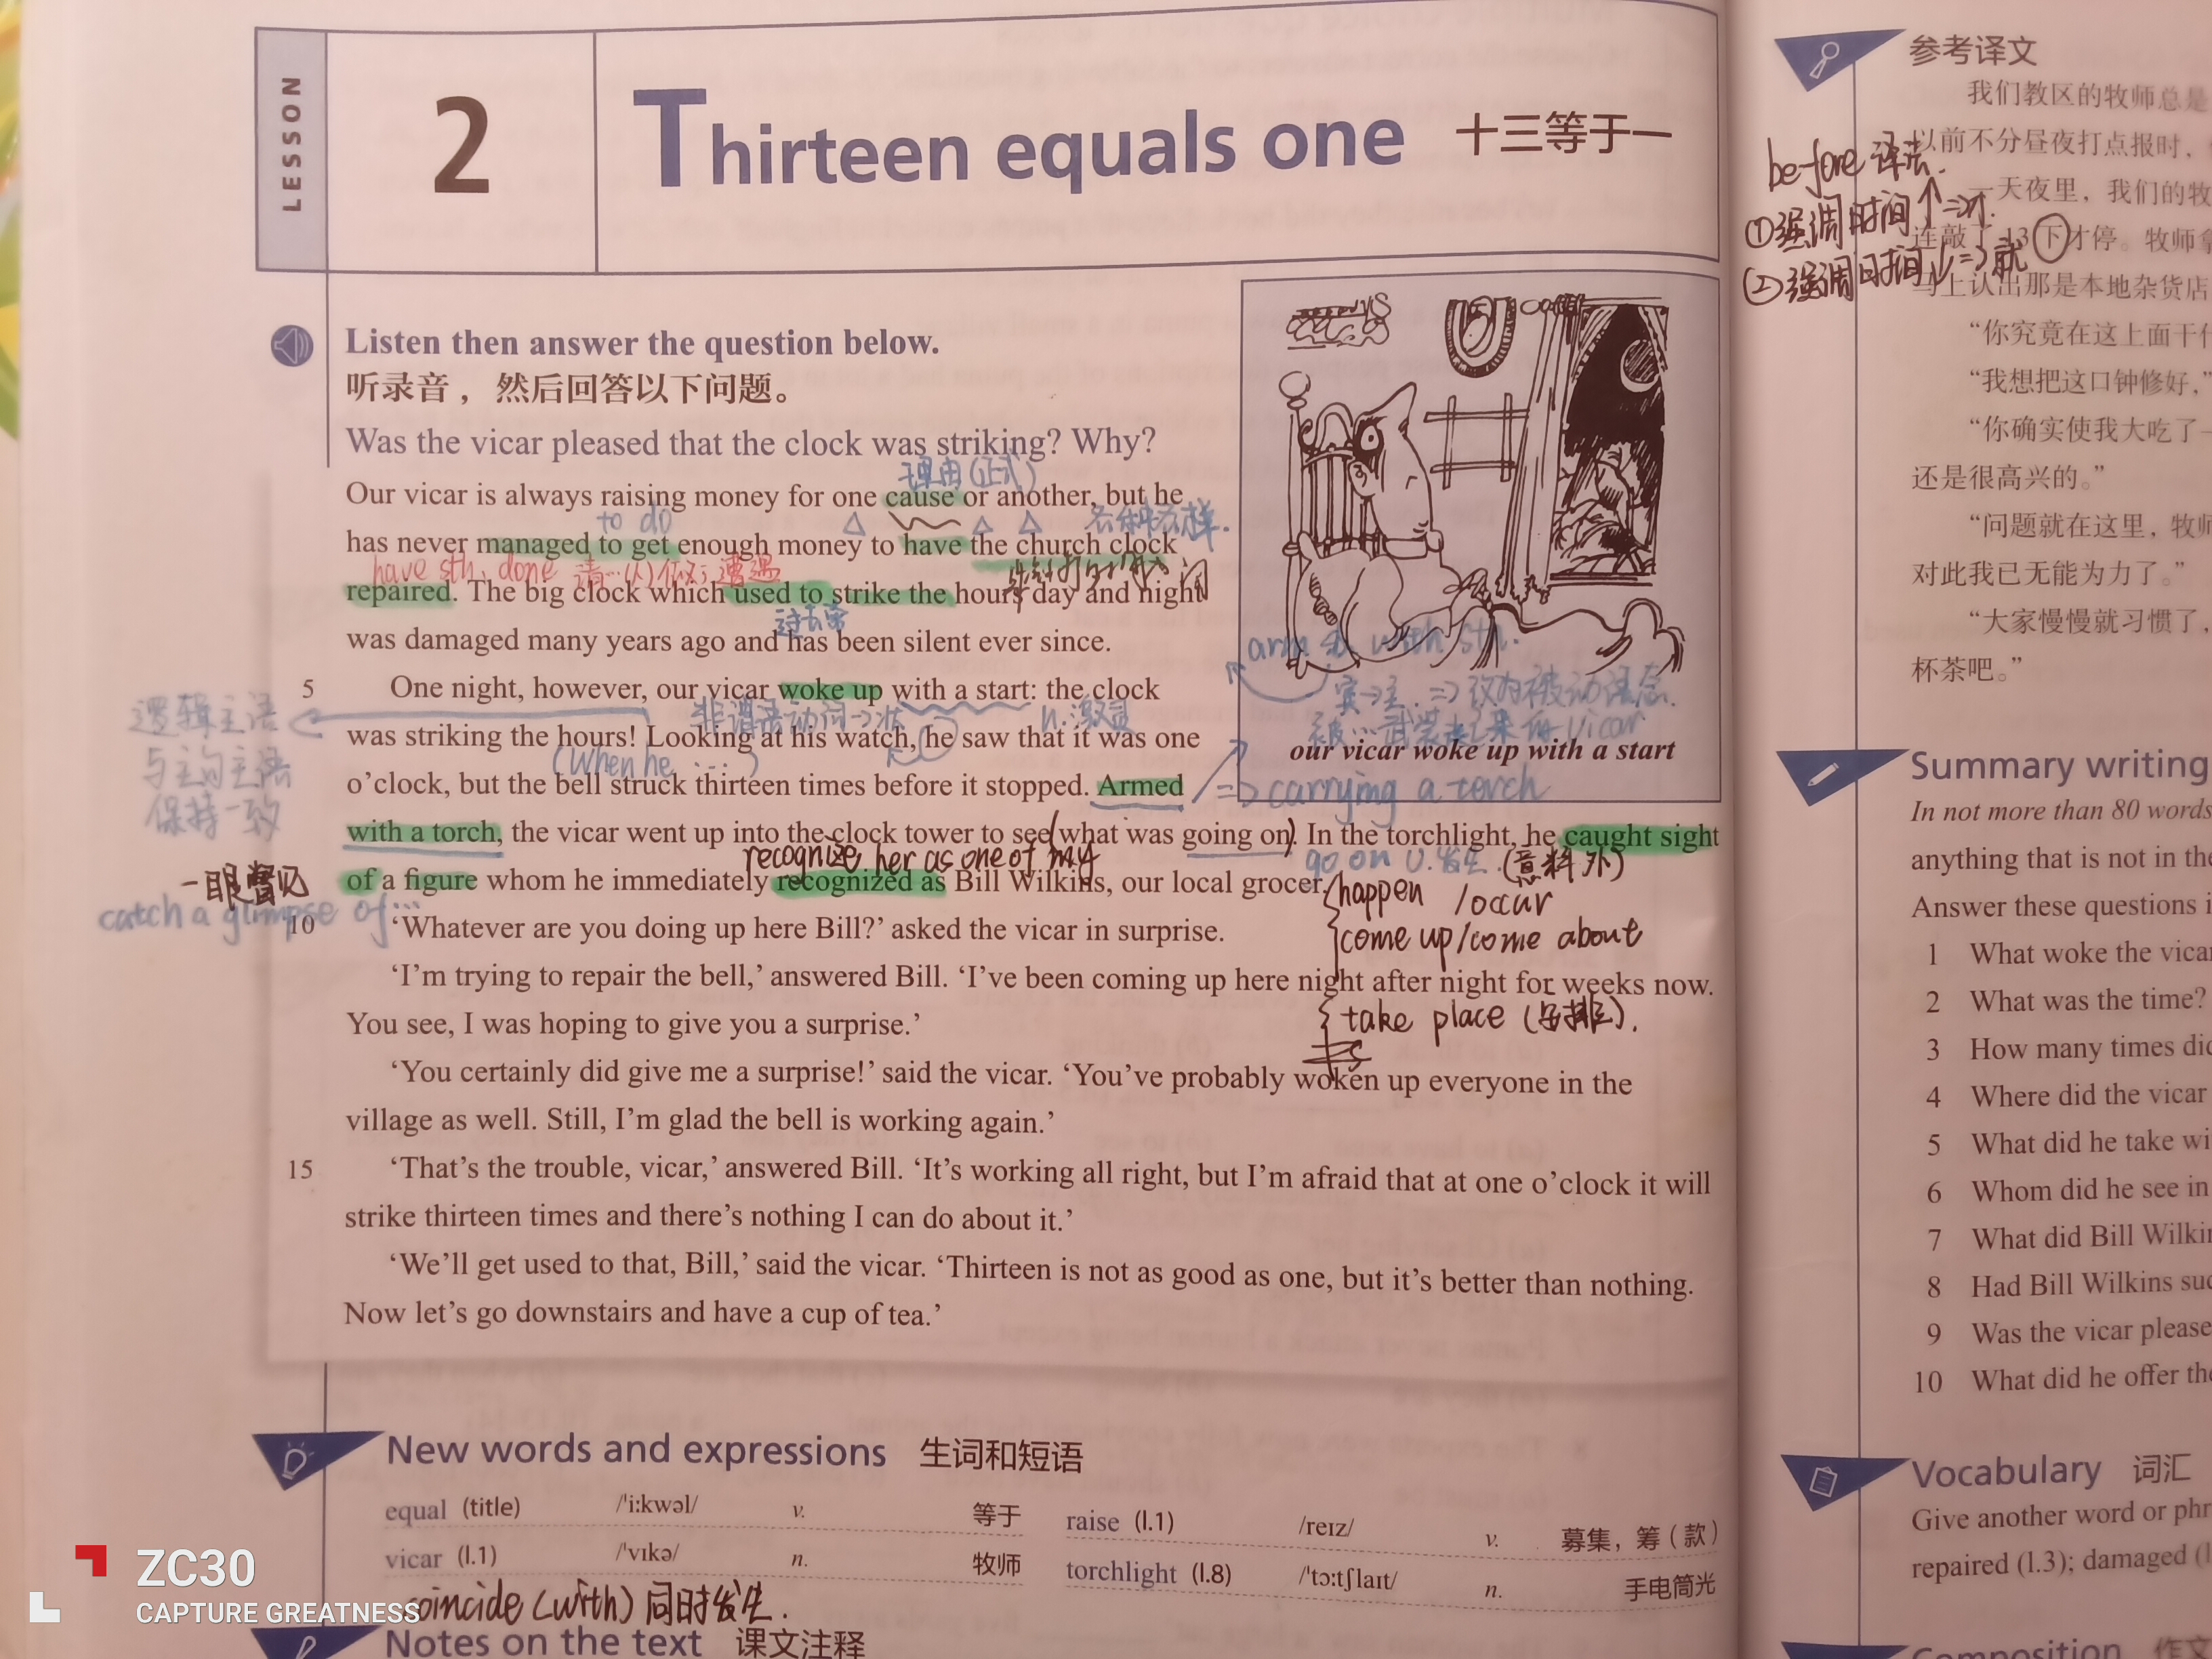 LESSON
2
Thirteen equals one 十三等于一
Listen then answer the question below.
听录音，然后回答以下问题。
Was the vicar pleased that the clock was striking? Why?
理由(正式)
Our vicar is always raising money for one cause or another, but he
to do
各种各样.
has never managed to get enough money to have the church clock
have sth. done 请…(人)做； 遭遇
repaired. The big clock which used to strike the hours day and night
过去常
was damaged many years ago and has been silent ever since.
arm sb. with sth.
5 One night, however, our vicar woke up with a start: the clock
逻辑主语
与主句主语
保持一致
非谓语动词→状
n.激灵
宾→主. => 改为被动语态.
被…武装起来的vicar
was striking the hours! Looking at his watch, he saw that it was one
(When he ...)
our vicar woke up with a start
o'clock, but the bell struck thirteen times before it stopped. Armed
=> carrying a torch
with a torch, the vicar went up into the clock tower to see (what was going on). In the torchlight, he caught sight
recognize her as one of my
go on v.发生.(意料外)
一眼瞥见
of a figure whom he immediately recognized as Bill Wilkins, our local grocer.
happen /occur
catch a glimpse of...
10 'Whatever are you doing up here Bill?' asked the vicar in surprise.
come up/come about
'I'm trying to repair the bell,' answered Bill. 'I've been coming up here night after night for weeks now.
You see, I was hoping to give you a surprise.'
take place (安排).
'You certainly did give me a surprise!' said the vicar. 'You've probably woken up everyone in the
village as well. Still, I'm glad the bell is working again.'
15 'That's the trouble, vicar,' answered Bill. 'It's working all right, but I'm afraid that at one o'clock it will
strike thirteen times and there's nothing I can do about it.'
'We'll get used to that, Bill,' said the vicar. 'Thirteen is not as good as one, but it's better than nothing.
Now let's go downstairs and have a cup of tea.'
New words and expressions 生词和短语
equal (title) /ˈiːkwəl/ v. 等于
raise (l.1) /reɪz/ v. 募集，筹（款）
vicar (l.1) /ˈvɪkə/ n. 牧师
torchlight (l.8) /ˈtɔːtʃlaɪt/ n. 手电筒光
coincide (with) 同时发生.
Notes on the text 课文注释
ZC30
CAPTURE GREATNESS
参考译文
我们教区的牧师总是
before 译法.
以前不分昼夜打点报时，
一天夜里，我们的牧
①强调时间↑=>才.
连敲了13下才停。牧师拿
②强调时间↓=>就
马上认出那是本地杂货店
“你究竟在这上面干什
“我想把这口钟修好，”
“你确实使我大吃了一
还是很高兴的。”
“问题就在这里，牧师
对此我已无能为力了。”
“大家慢慢就习惯了，
杯茶吧。”
Summary writing
In not more than 80 words
anything that is not in the
Answer these questions i
1 What woke the vicar
2 What was the time?
3 How many times did
4 Where did the vicar
5 What did he take wi
6 Whom did he see in
7 What did Bill Wilkin
8 Had Bill Wilkins suc
9 Was the vicar please
10 What did he offer the
Vocabulary 词汇
Give another word or phr
repaired (l.3); damaged (l
Composition 作文